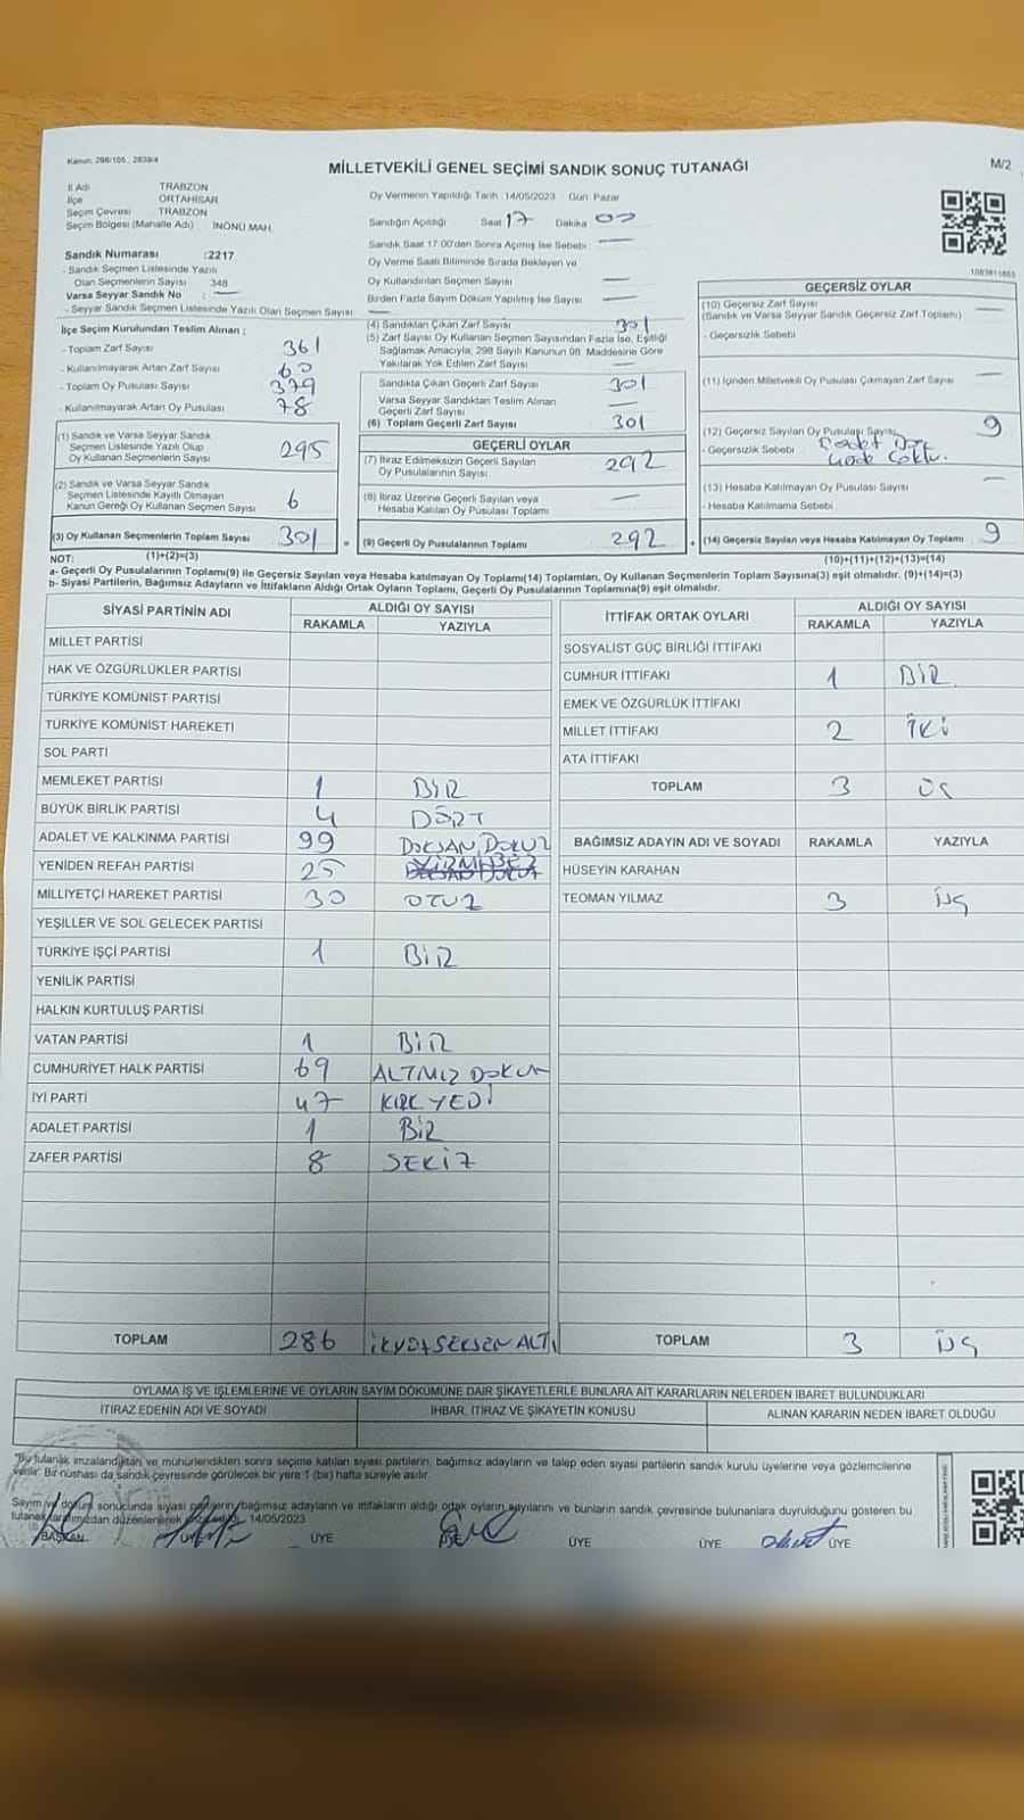 Kanun: 298/105, 2839/4
MİLLETVEKİLİ GENEL SEÇİMİ SANDIK SONUÇ TUTANAĞI
M/2
İl Adı TRABZON
İlçe ORTAHİSAR
Seçim Çevresi TRABZON
Seçim Bölgesi (Mahalle Adı) İNÖNÜ MAH.
Oy Vermenin Yapıldığı Tarih :14/05/2023 Gün: Pazar
Sandığın Açıldığı Saat 17 Dakika 00
Sandık Saat 17:00'den Sonra Açılmış İse Sebebi: —
Oy Verme Saati Bitiminde Sırada Bekleyen ve
Oy Kullandırılan Seçmen Sayısı —
Birden Fazla Sayım Döküm Yapılmış İse Sayısı —
Sandık Numarası :2217
- Sandık Seçmen Listesinde Yazılı
Olan Seçmenlerin Sayısı 348
Varsa Seyyar Sandık No : —
- Seyyar Sandık Seçmen Listesinde Yazılı Olan Seçmen Sayısı —
İlçe Seçim Kurulundan Teslim Alınan ;
- Toplam Zarf Sayısı 361
- Kullanılmayarak Artan Zarf Sayısı 60
- Toplam Oy Pusulası Sayısı 379
- Kullanılmayarak Artan Oy Pusulası 78
(1) Sandık ve Varsa Seyyar Sandık
Seçmen Listesinde Yazılı Olup
Oy Kullanan Seçmenlerin Sayısı 295
(2) Sandık ve Varsa Seyyar Sandık
Seçmen Listesinde Kayıtlı Olmayan
Kanun Gereği Oy Kullanan Seçmen Sayısı 6
(3) Oy Kullanan Seçmenlerin Toplam Sayısı 301 =
(4) Sandıktan Çıkan Zarf Sayısı 301
(5) Zarf Sayısı Oy Kullanan Seçmen Sayısından Fazla İse, Eşitliği
Sağlamak Amacıyla, 298 Sayılı Kanunun 98. Maddesine Göre
Yakılarak Yok Edilen Zarf Sayısı —
Sandıkta Çıkan Geçerli Zarf Sayısı 301
Varsa Seyyar Sandıktan Teslim Alınan
Geçerli Zarf Sayısı —
(6) Toplam Geçerli Zarf Sayısı 301
GEÇERLİ OYLAR
(7) İtiraz Edilmeksizin Geçerli Sayılan
Oy Pusulalarının Sayısı 292
(8) İtiraz Üzerine Geçerli Sayılan veya
Hesaba Katılan Oy Pusulası Toplamı —
(9) Geçerli Oy Pusulalarının Toplamı 292 +
1083811655
GEÇERSİZ OYLAR
(10) Geçersiz Zarf Sayısı —
(Sandık ve Varsa Seyyar Sandık Geçersiz Zarf Toplamı)
- Geçersizlik Sebebi
(11) İçinden Milletvekili Oy Pusulası Çıkmayan Zarf Sayısı —
(12) Geçersiz Sayılan Oy Pusulası Sayısı 9
- Geçersizlik Sebebi
(13) Hesaba Katılmayan Oy Pusulası Sayısı —
- Hesaba Katılmama Sebebi
(14) Geçersiz Sayılan veya Hesaba Katılmayan Oy Toplamı 9
NOT: (1)+(2)=(3)
(10)+(11)+(12)+(13)=(14)
a- Geçerli Oy Pusulalarının Toplamı(9) ile Geçersiz Sayılan veya Hesaba katılmayan Oy Toplamı(14) Toplamları, Oy Kullanan Seçmenlerin Toplam Sayısına(3) eşit olmalıdır. (9)+(14)=(3)
b- Siyasi Partilerin, Bağımsız Adayların ve İttifakların Aldığı Ortak Oyların Toplamı, Geçerli Oy Pusulalarının Toplamına(9) eşit olmalıdır.
SİYASİ PARTİNİN ADI ALDIĞI OY SAYISI
RAKAMLA YAZIYLA
MİLLET PARTİSİ
HAK VE ÖZGÜRLÜKLER PARTİSİ
TÜRKİYE KOMÜNİST PARTİSİ
TÜRKİYE KOMÜNİST HAREKETİ
SOL PARTİ
MEMLEKET PARTİSİ 1 BİR
BÜYÜK BİRLİK PARTİSİ 4 DÖRT
ADALET VE KALKINMA PARTİSİ 99 DOKSAN DOKUZ
YENİDEN REFAH PARTİSİ 25 YİRMİ BEŞ
MİLLİYETÇİ HAREKET PARTİSİ 30 OTUZ
YEŞİLLER VE SOL GELECEK PARTİSİ
TÜRKİYE İŞÇİ PARTİSİ 1 BİR
YENİLİK PARTİSİ
HALKIN KURTULUŞ PARTİSİ
VATAN PARTİSİ 1 BİR
CUMHURİYET HALK PARTİSİ 69 ALTMIZ DOKUZ
İYİ PARTİ 47 KIRK YEDİ
ADALET PARTİSİ 1 BİR
ZAFER PARTİSİ 8 SEKİZ
TOPLAM 286 İKİYÜZ SEKSEN ALTI
İTTİFAK ORTAK OYLARI ALDIĞI OY SAYISI
RAKAMLA YAZIYLA
SOSYALİST GÜÇ BİRLİĞİ İTTİFAKI
CUMHUR İTTİFAKI 1 BİR
EMEK VE ÖZGÜRLÜK İTTİFAKI
MİLLET İTTİFAKI 2 İKİ
ATA İTTİFAKI
TOPLAM 3 ÜÇ
BAĞIMSIZ ADAYIN ADI VE SOYADI RAKAMLA YAZIYLA
HÜSEYİN KARAHAN
TEOMAN YILMAZ 3 ÜÇ
TOPLAM 3 ÜÇ
OYLAMA İŞ VE İŞLEMLERİNE VE OYLARIN SAYIM DÖKÜMÜNE DAİR ŞİKAYETLERLE BUNLARA AİT KARARLARIN NELERDEN İBARET BULUNDUKLARI
İTİRAZ EDENİN ADI VE SOYADI İHBAR, İTİRAZ VE ŞİKAYETİN KONUSU ALINAN KARARIN NEDEN İBARET OLDUĞU
"Bu tutanak imzalandıktan ve mühürlendikten sonra seçime katılan siyasi partilerin, bağımsız adayların ve talep eden siyasi partilerin sandık kurulu üyelerine veya gözlemcilerine
verilir. Bir nüshası da sandık çevresinde görülecek bir yere 1 (bir) hafta süreyle asılır.
Sayım ve döküm sonucunda siyasi partilerin, bağımsız adayların ve ittifakların aldığı ortak oyların sayılarını ve bunların sandık çevresinde bulunanlara duyrulduğunu gösteren bu
tutanak tarafımızdan düzenlenerek 14/05/2023
BAŞKAN ÜYE ÜYE ÜYE ÜYE ÜYE ÜYE